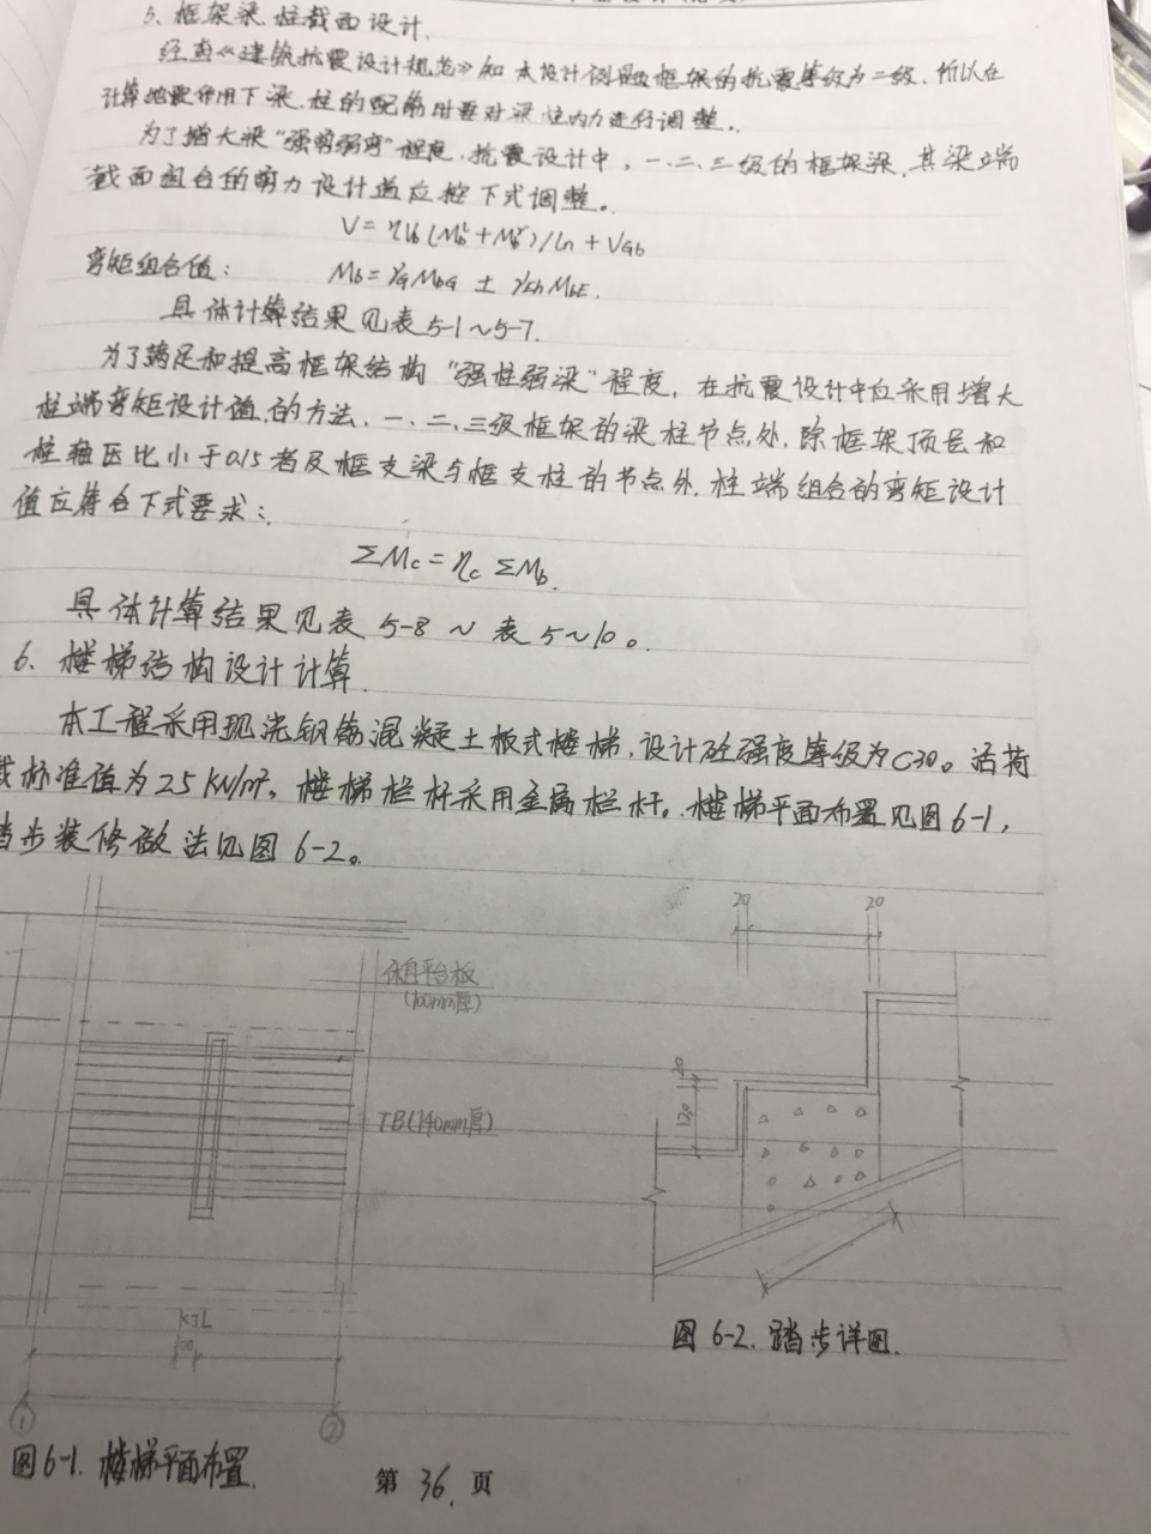 5、框架梁、柱截面设计.
经查《建筑抗震设计规范》知本设计例题框架的抗震等级为二级、所以在
计算地震作用下梁、柱的配筋时要对梁柱内力进行调整。
为了增大梁"强剪弱弯"程度,抗震设计中,一、二、三级的框架梁,其梁端
截面组合的剪力设计值应按下式调整。
V=ηVb(Mbˡ+Mbʳ)/ln+VGb
弯矩组合值:
Mb=γGMbG ± γEhMbE.
具体计算结果见表5-1~5-7.
为了满足和提高框架结构"强柱弱梁"程度,在抗震设计中应采用增大
柱端弯矩设计值的方法,一、二、三级框架的梁柱节点处,除框架顶层和
柱轴压比小于0.15者及框支梁与框支柱的节点外,柱端组合的弯矩设计
值应符合下式要求:
ΣMc=ηc ΣMb.
具体计算结果见表5-8~表5~10。
6、楼梯结构设计计算.
本工程采用现浇钢筋混凝土板式楼梯,设计砼强度等级为C30。活荷
载标准值为2.5KN/m²,楼梯栏杆采用金属栏杆。楼梯平面布置见图6-1,
踏步装修做法见图6-2。
20
20
休息平台板
(100mm厚)
20
120
TB(140mm厚)
KJL
①
②
图6-2.踏步详图.
图6-1.楼梯平面布置.
第36.页